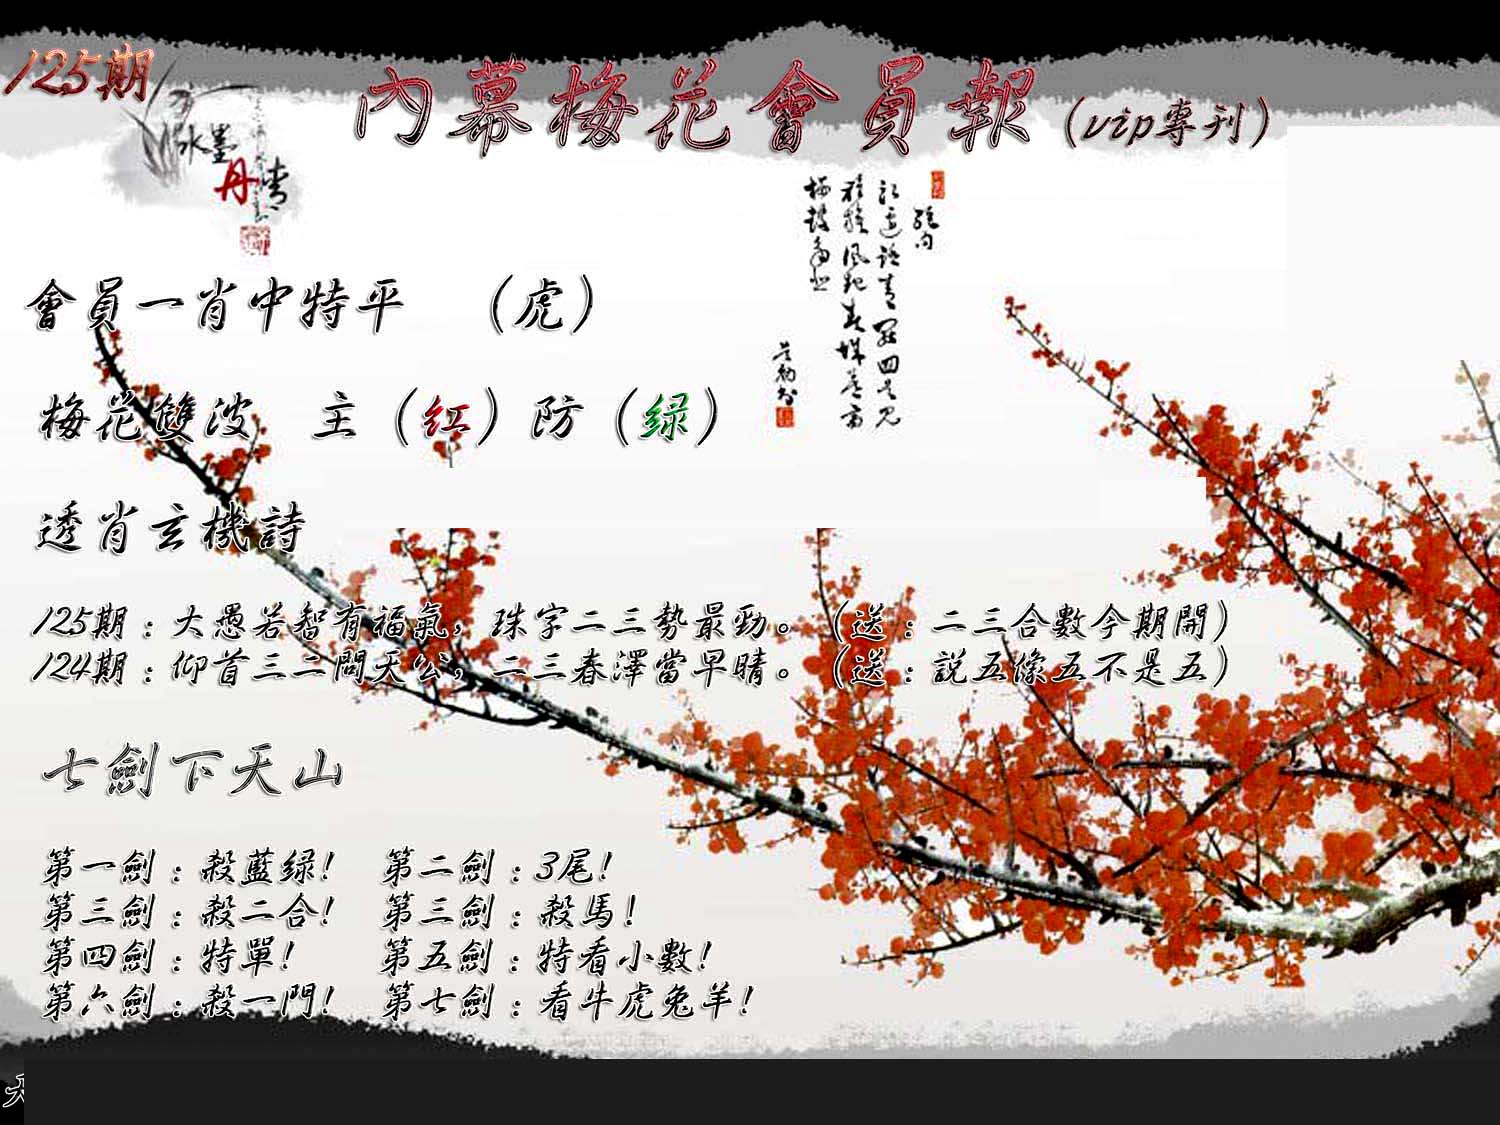 125期
內幕梅花會員報（vip專刊）
水墨
丹青
會員一肖中特平　（虎）
梅花雙波　主（红）防（绿）
透肖玄機詩
125期：大愚若智有福氣，珠字二三勢最勁。（送：二三合數今期開）
124期：仰首三二問天公，二三春澤當早晴。（送：説五像五不是五）
七劍下天山
第一劍：殺藍绿！　第二劍：3尾！
第三劍：殺二合！　第三劍：殺馬！
第四劍：特單！　第五劍：特看小數！
第六劍：殺一門！　第七劍：看牛虎兔羊！